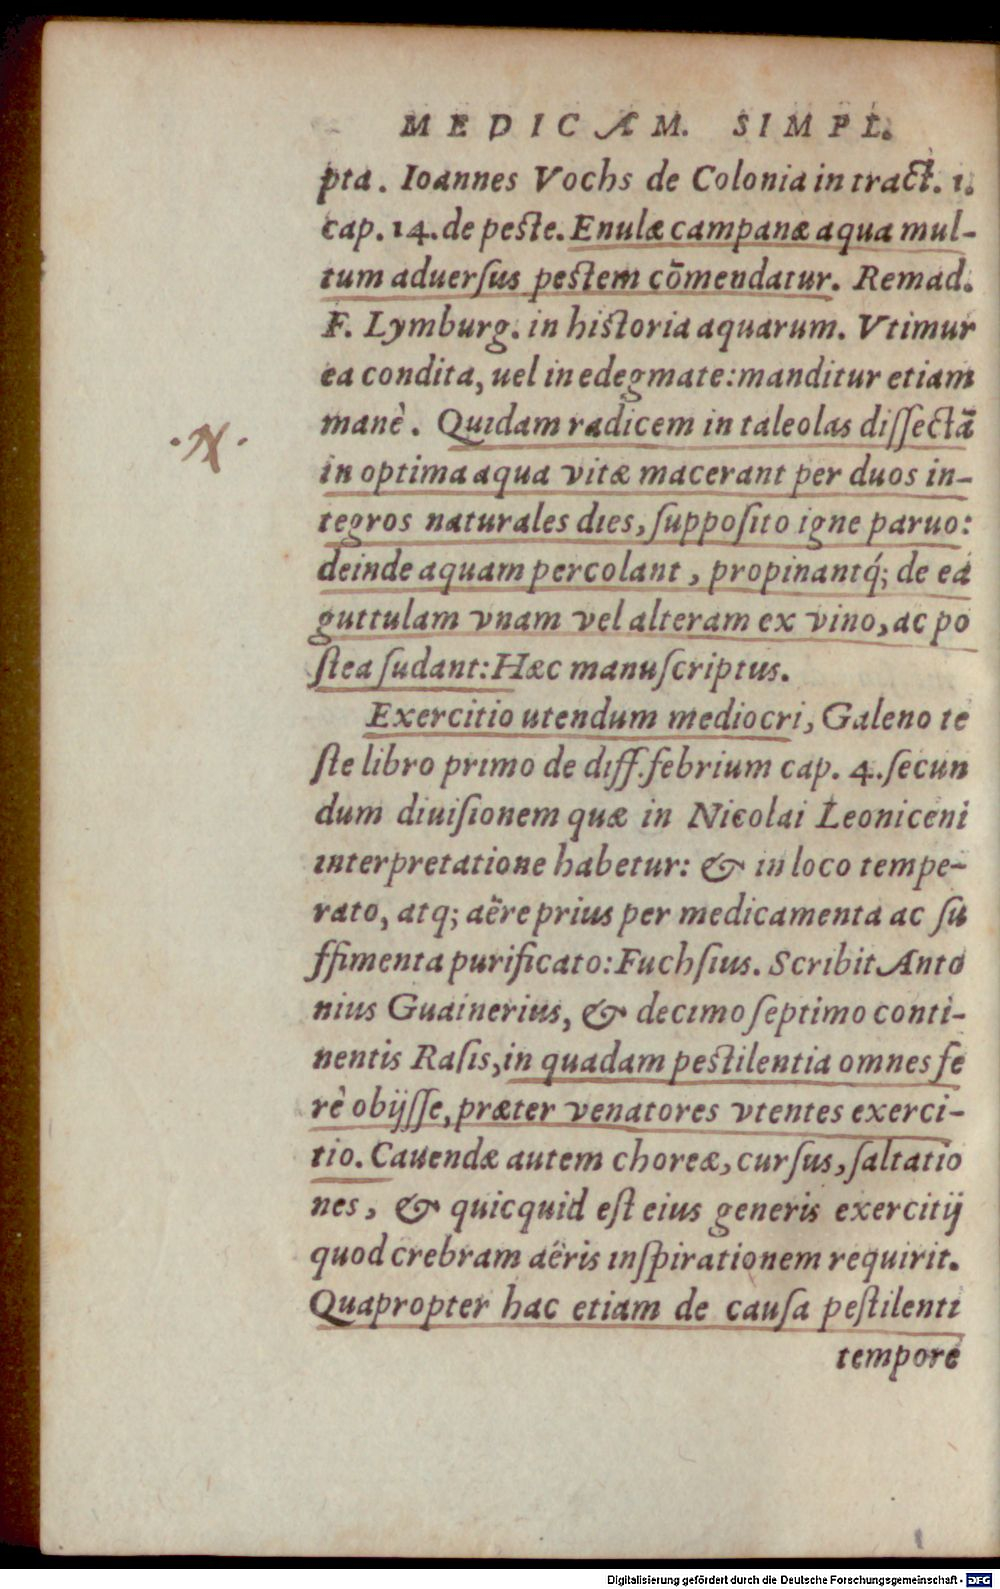 MEDICAM. SIMPL.
pta. Ioannes Vochs de Colonia in tract. 1.
cap. 14. de peste. Enulæ campanæ aqua mul-
tum aduerſus peſtem cōmendatur. Remad.
F. Lymburg. in hiſtoria aquarum. Vtimur
ea condita, uel in edegmate: manditur etiam
manè. Quidam radicem in taleolas diſſectā
in optima aqua vitæ macerant per duos in-
tegros naturales dies, ſuppoſito igne paruo:
deinde aquam percolant, propinantq́; de ea
guttulam vnam vel alteram ex vino, ac po
ſtea ſudant: Hæc manuſcriptus.
Exercitio utendum mediocri, Galeno te
ſte libro primo de diff. febrium cap. 4. ſecun
dum diuiſionem quæ in Nicolai Leoniceni
interpretatione habetur: & in loco tempe-
rato, atq; aëre prius per medicamenta ac ſu
ffimenta purificato: Fuchſius. Scribit Anto
nius Guainerius, & decimo ſeptimo conti-
nentis Raſis, in quadam peſtilentia omnes fe
rè obijſſe, præter venatores vtentes exerci-
tio. Cauendæ autem choreæ, curſus, ſaltatio
nes, & quicquid eſt eius generis exercitij
quod crebram aëris inſpirationem requirit.
Quapropter hac etiam de cauſa peſtilenti
tempore
Digitalisierung gefördert durch die Deutsche Forschungsgemeinschaft - DFG